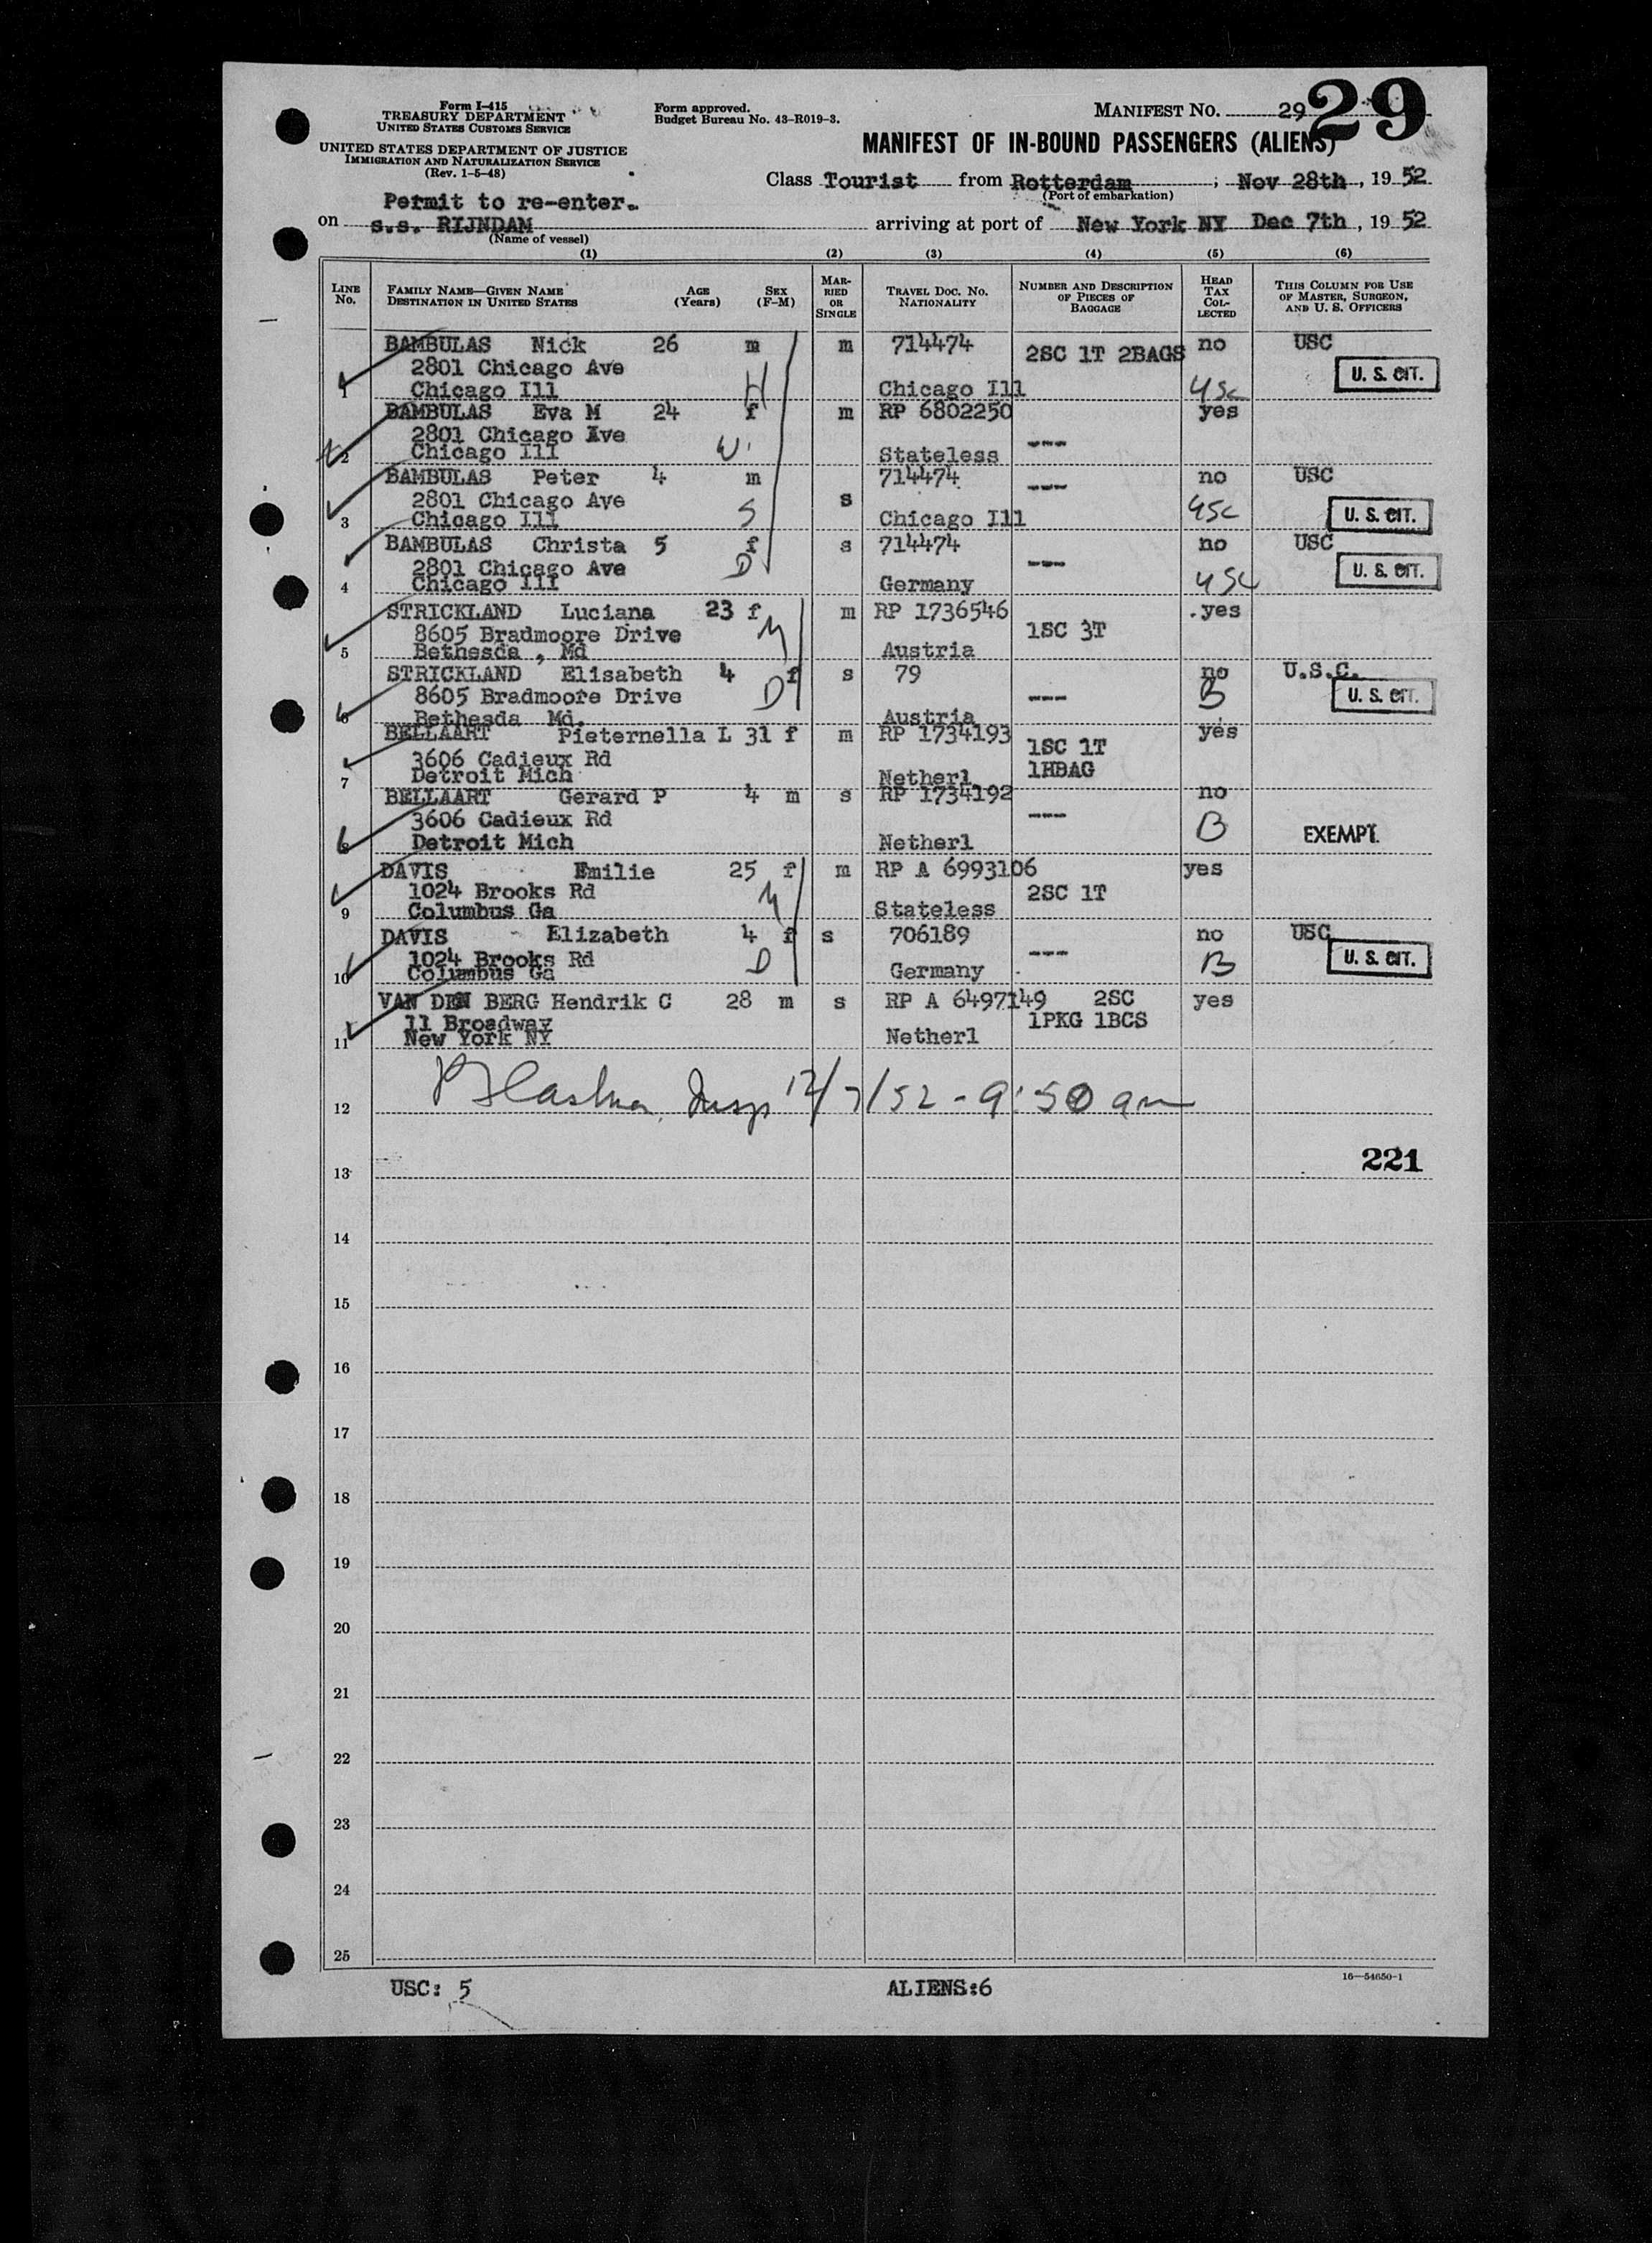 Form I-415
TREASURY DEPARTMENT
UNITED STATES CUSTOMS SERVICE
UNITED STATES DEPARTMENT OF JUSTICE
IMMIGRATION AND NATURALIZATION SERVICE
(Rev. 1-5-48)
Form approved.
Budget Bureau No. 43-R019-3.
MANIFEST NO. 29 29
MANIFEST OF IN-BOUND PASSENGERS (ALIENS)
Class Tourist from Rotterdam ; Nov 28th, 19 52
(Port of embarkation)
Permit to re-enter.
on s.s. RIJNDAM arriving at port of New York NY Dec 7th, 19 52
(Name of vessel)
(1) (2) (3) (4) (5) (6)
LINE No. FAMILY NAME—GIVEN NAME DESTINATION IN UNITED STATES AGE (Years) SEX (F-M) MARRIED OR SINGLE TRAVEL DOC. NO. NATIONALITY NUMBER AND DESCRIPTION OF PIECES OF BAGGAGE HEAD TAX COLLECTED THIS COLUMN FOR USE OF MASTER, SURGEON, AND U. S. OFFICERS
BAMBULAS Nick 26 m m 714474 2SC 1T 2BAGS no USC
2801 Chicago Ave H U. S. CIT.
1 Chicago Ill Chicago Ill USC
BAMBULAS Eva M 24 f m RP 6802250 yes
2801 Chicago Ave W ---
2 Chicago Ill Stateless
BAMBULAS Peter 4 m 714474 --- no USC
2801 Chicago Ave S s USC U. S. CIT.
3 Chicago Ill Chicago Ill
BAMBULAS Christa 5 f s 714474 no USC
2801 Chicago Ave D --- U. S. CIT.
4 Chicago Ill Germany USC
STRICKLAND Luciana 23 f m RP 1736546 yes
8605 Bradmoore Drive M 1SC 3T
5 Bethesda , Md Austria
STRICKLAND Elisabeth 4 f s 79 no U.S.C.
8605 Bradmoore Drive D --- B U. S. CIT.
6 Bethesda Md. Austria
BELLAART Pieternella L 31 f m RP 1734193 1SC 1T yes
3606 Cadieux Rd 1HBAG
7 Detroit Mich Netherl
BELLAART Gerard P 4 m s RP 1734192 no
3606 Cadieux Rd --- B EXEMPT.
8 Detroit Mich Netherl
DAVIS Emilie 25 f m RP A 6993106 yes
1024 Brooks Rd M 2SC 1T
9 Columbus Ga Stateless
DAVIS Elizabeth 4 f s 706189 no USC
1024 Brooks Rd D --- B U. S. CIT.
10 Columbus Ga Germany
VAN DEN BERG Hendrik C 28 m s RP A 6497149 2SC yes
11 Broadway 1PKG 1BCS
11 New York NY Netherl
12 Insp 12/7/52 - 9:50 am
221
13
14
15
16
17
18
19
20
21
22
23
24
25
USC: 5 ALIENS:6 16—54650-1